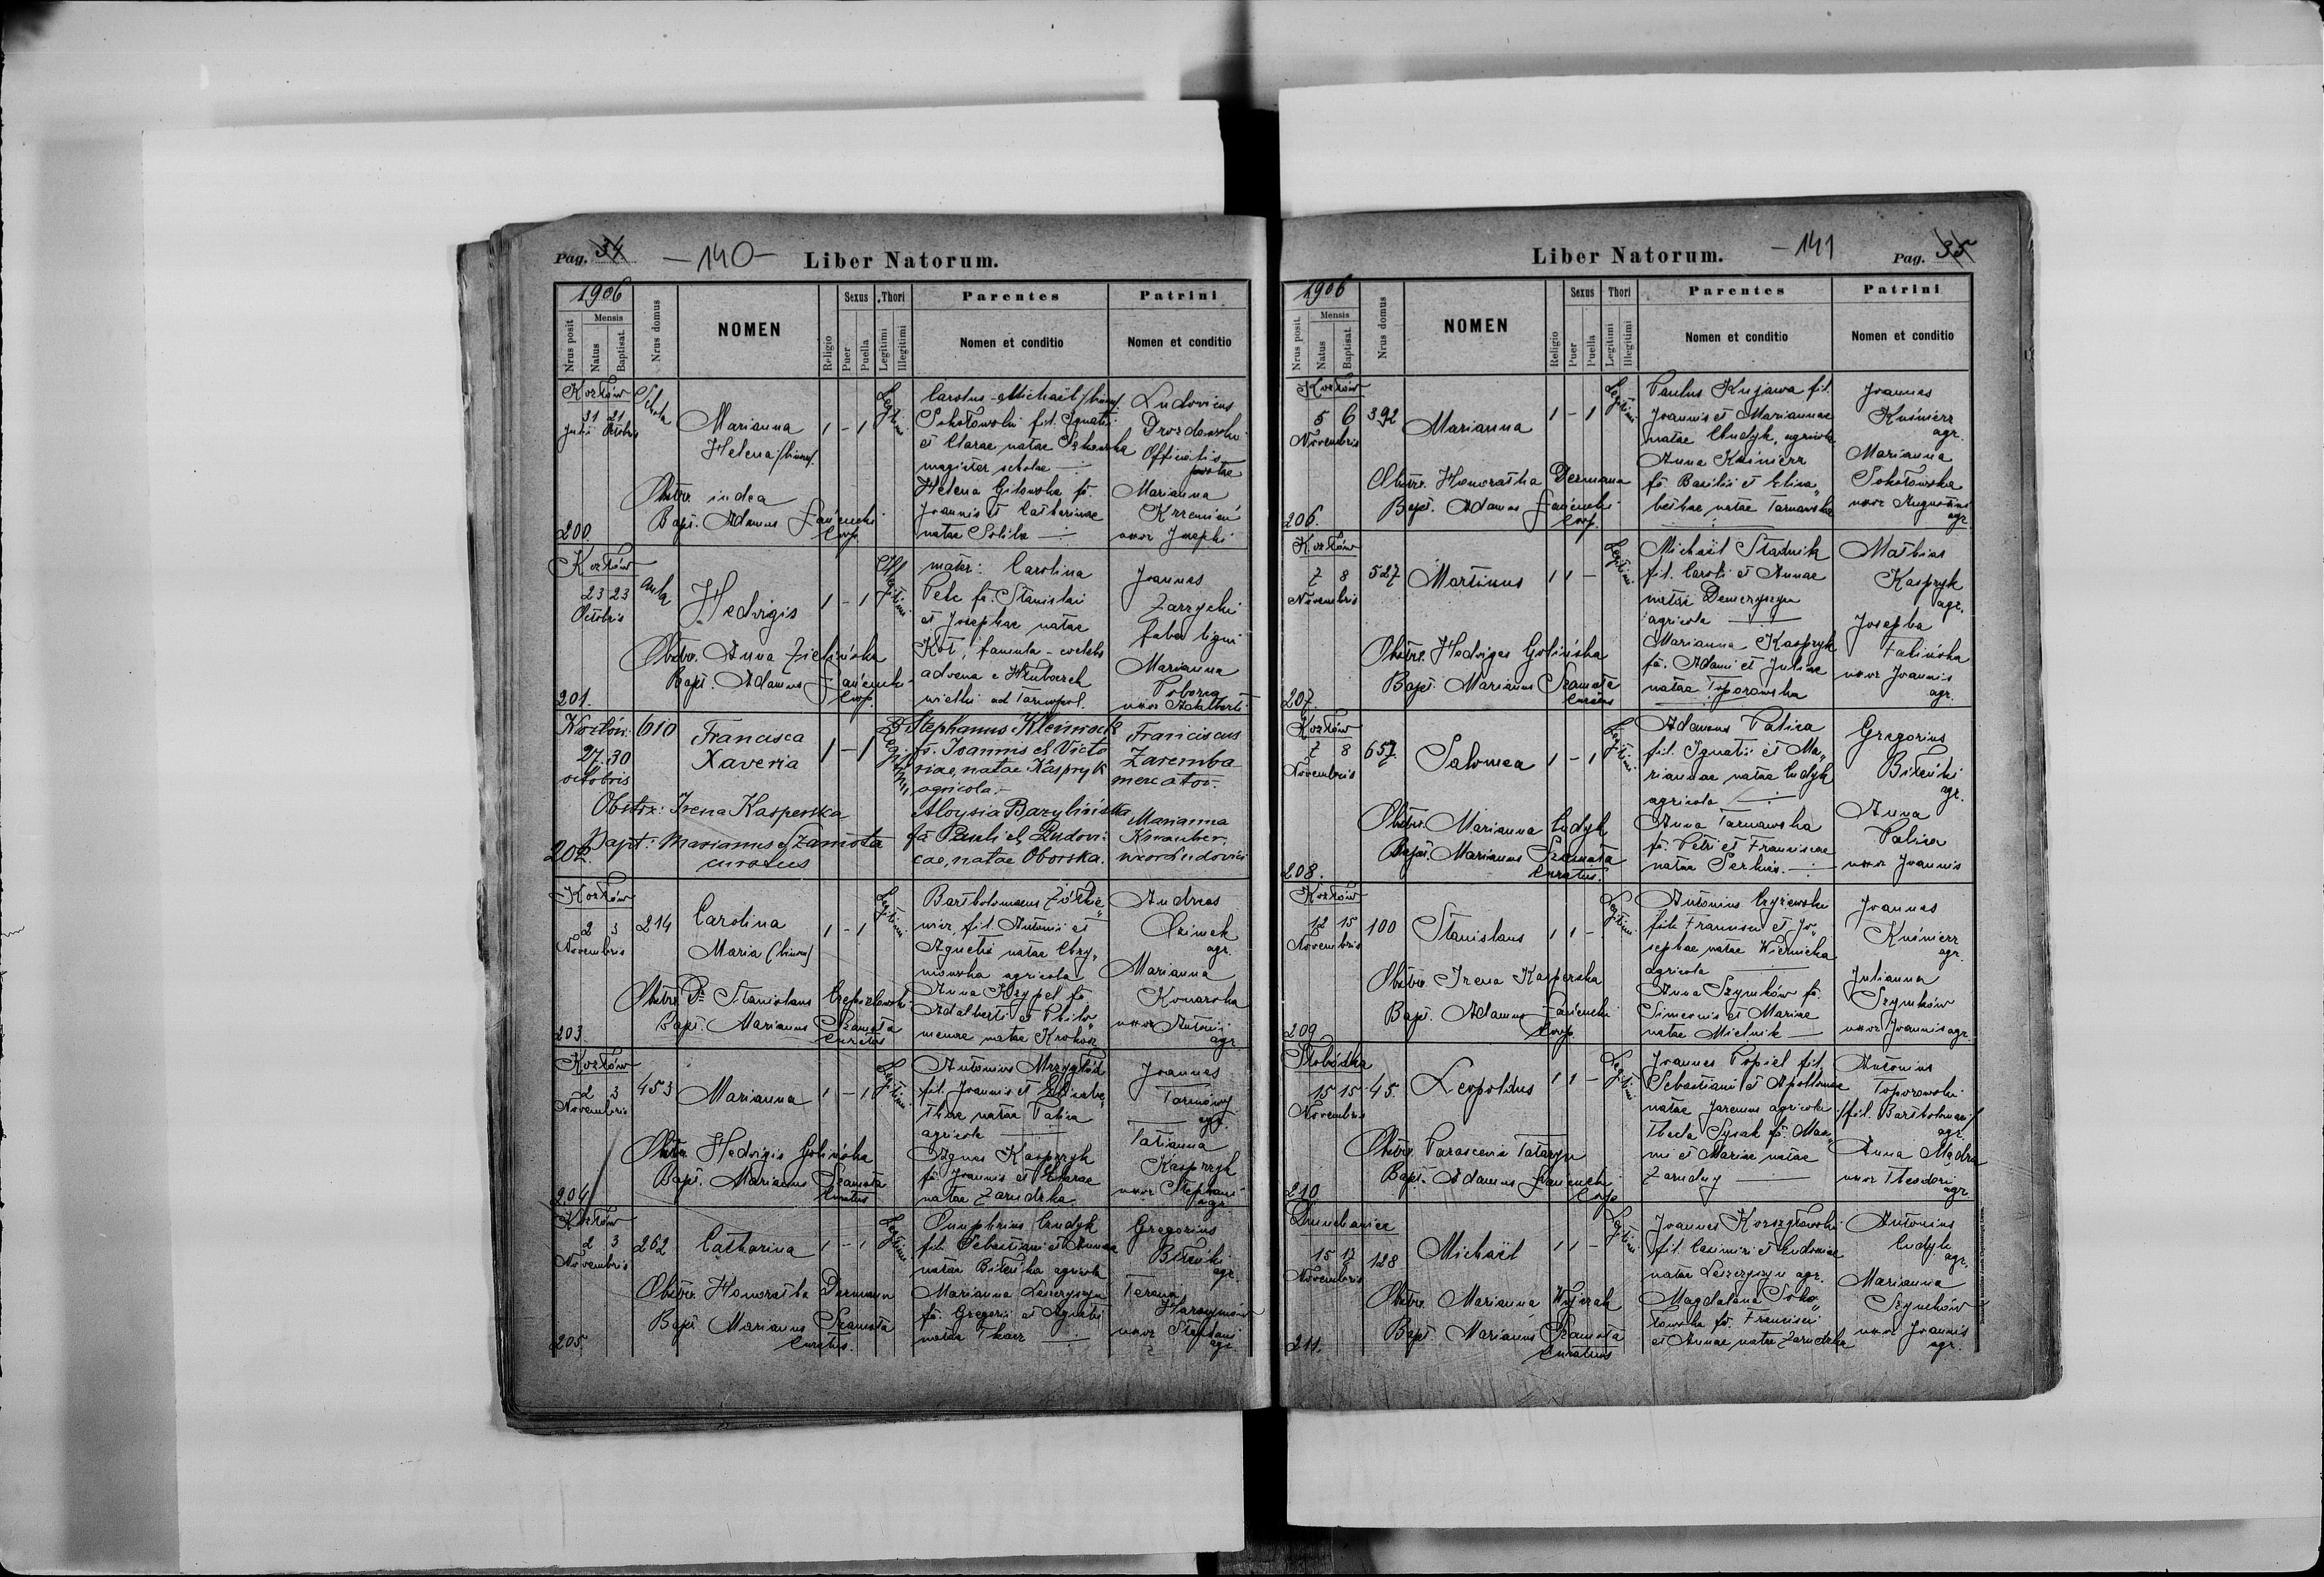 Pag. 34
-140-
Liber Natorum.
1906
Nrus posit
Mensis
Natus
Baptisat.
Nrus domus
NOMEN
Religio
Sexus
Puer
Puella
Thori
Legitimi
Illegitimi
Parentes
Nomen et conditio
Patrini
Nomen et conditio
Kozłów
21 21
Julii Octobris
Marianna
Helena /binom/
1 - 1
Legitimi
Carolus-Michaël /binom/
Sokołowski fil. Ignatii
et Clarae natae
magister scholae
Helena Gilowska fa.
Joannis et Catharinae
natae
Ludovicus
Officialis
Marianna
Krzemień
uxor Josephi
Obstetr. indea
Bapt. Adamus Łańcucki
Coop.
200.
Kozłów
23 23
Octobris
aula
Hedvigis
1 - 1
Illegitimi
mater: Carolina
Petc fa. Stanislai
et Josephae natae
Kot, famula - coelebs
advena e
ad Tarnopol.
Joannes
Zarzycki
faber ligni
Marianna
uxor Adalberti
Obstetr. Anna Zielińska
Bapt. Adamus Łańcucki
Coop.
201.
Kozłów. 610
27. 30
octobris
Francisca
Xaveria
1 - 1
Legitimi
Stephanus Kleinrock
fs. Joannis et Victo
riae, natae Kaspryk
agricola.-
Aloysia Bazylińska
fa Pauli et Ludovi
cae, natae Oborska.
Franciscus
Zaremba
mercator.
Marianna
uxor Ludovici
Obstr: Irena Kasperska
Bapt: Marianus Szamota
curatus
202.
Kozłów
2 3
Novembris
214
Carolina
Maria (binom)
1 - 1
Legitimi
Bartholomaeus Żółkie„
wicz, fil. Antonii et
Agnetis natae Chry„
niowska agricola
Anna Krypel fa.
Adalberti et Philo„
menae natae Krokosz
Andreas
agr.
Marianna
Konarska
uxor Antonii
agr.
Obstetr. Dr Stanislaus
Bapt. Marianus Szamota
Curatus
203.
Kozłów
2 3
Novembris
453
Marianna
1 - 1
Legitimi
Antonius Mrzygłód
fil. Joannis et Elisabe„
thae natae Palica
agricola
Agnes Kasprzyk
fa. Joannis et Clarae
natae Zarudzka
Joannes
Tarnowy
agr.
Tatianna
Kasprzyk
uxor Stephani
agr.
Obstetr. Hedvigis Golińska
Bapt. Marianus Szamota
Curatus
204.
Kozłów
2 3
Novembris
262
Catharina
1 - 1
Legitimi
Onuphrius Cudyk
fil. Sebastiani et Annae
natae Bileńka agricola
Marianna Leszczyszyn
fa. Gregorii et Agnetis
natae Tkacz
Gregorius
Bileńki
agr.
Teresia
Harasymów
uxor Stephani
agr.
Obstetr. Honoratha Dermann
Bapt. Marianus Szamota
Curatus.
205.
Liber Natorum.
-141
Pag. 35
1906
Nrus posit.
Mensis
Natus
Baptisat.
Nrus domus
NOMEN
Religio
Sexus
Puer
Puella
Thori
Legitimi
Illegitimi
Parentes
Nomen et conditio
Patrini
Nomen et conditio
Kozłów
5 6
Novembris
392
Marianna
1 - 1
Legitimi
Paulus Kujawa fil.
Joannis et Mariannae
natae Cudyk, agricola
Anna Kuśnierz
fa. Basilii et Elisa„
bethae natae Tarnawska
Joannes
Kuśnierz
agr.
Marianna
Sokołowska
uxor Augustini
agr.
Obstetr. Honoratha Dermann
Bapt. Adamus Łańcucki
Coop.
206.
Kozłów
7 8
Novembris
527
Martinus
1 1 -
Legitimi
Michaël Stadnik
fil. Caroli et Annae
natae Demczyszyn
agricola
Marianna Kaspryk
fa. Adami et Julinae
natae Toporowska
Mathias
Kaspryk
agr.
Josepha
Falińska
uxor Joannis
agr.
Obstetr. Hedviges Golińska
Bapt. Marianus Szamota
Curatus
207.
Kozłów
7 8
Novembris
657.
Salomea
1 - 1
Legitimi
Adamus Palica
fil. Ignatii et Ma„
riannae natae Cudyk
agricola
Anna Tarnawska
fa. Petri et Franciscae
natae Serkies.
Gregorius
Bileńki
agr.
Anna
Palica
uxor Joannis
Obstetr. Marianna Cudyk
Bapt. Marianus Szamota
Curatus.
208.
Kozłów
12 15
Novembris
100
Stanislaus
1 1 -
Legitimi
Antonius Czyżewski
fil. Francisci et Jo„
sephae natae Wiernicka
agricola
Anna Szymków fa.
Simeonis et Mariae
natae Mielnik
Joannes
Kuśnierz
agr.
Julianna
Szymków
uxor Joannis agr.
Obstetr. Irena Kasperska
Bapt. Adamus Łańcucki
Coop.
209
Słobódka
15 15
Novembris
45.
Leopoldus
1 1 -
Legitimi
Joannes Popiel fil.
Sebastiani et Apolloniae
natae Jaremus agricola
Thecla Sysak fa. Maxi„
mi et Mariae natae
Zarudny
Antonius
Toporowski
/fil. Bartholomaei/
agr.
Anna Mądra
uxor Theodori
agr.
Obstetr. Parascevia Tataryn
Bapt. Adamus Łańcucki
Coop
210
15 17
Novembris
128
Michaël
1 1 -
Legitimi
Joannes Korzyłowski
fil. Casimiri et Eudoxiae
natae Leszczyszyn agr.
Magdalena Soko„
łowska fa. Francisci
et Annae natae Zarudzka
Antonius
Cudyk
agr.
Marianna
Szymków
uxor Joannis
agr.
Obstetr. Marianna Wojczak
Bapt. Marianus Szamota
Curatus
211.